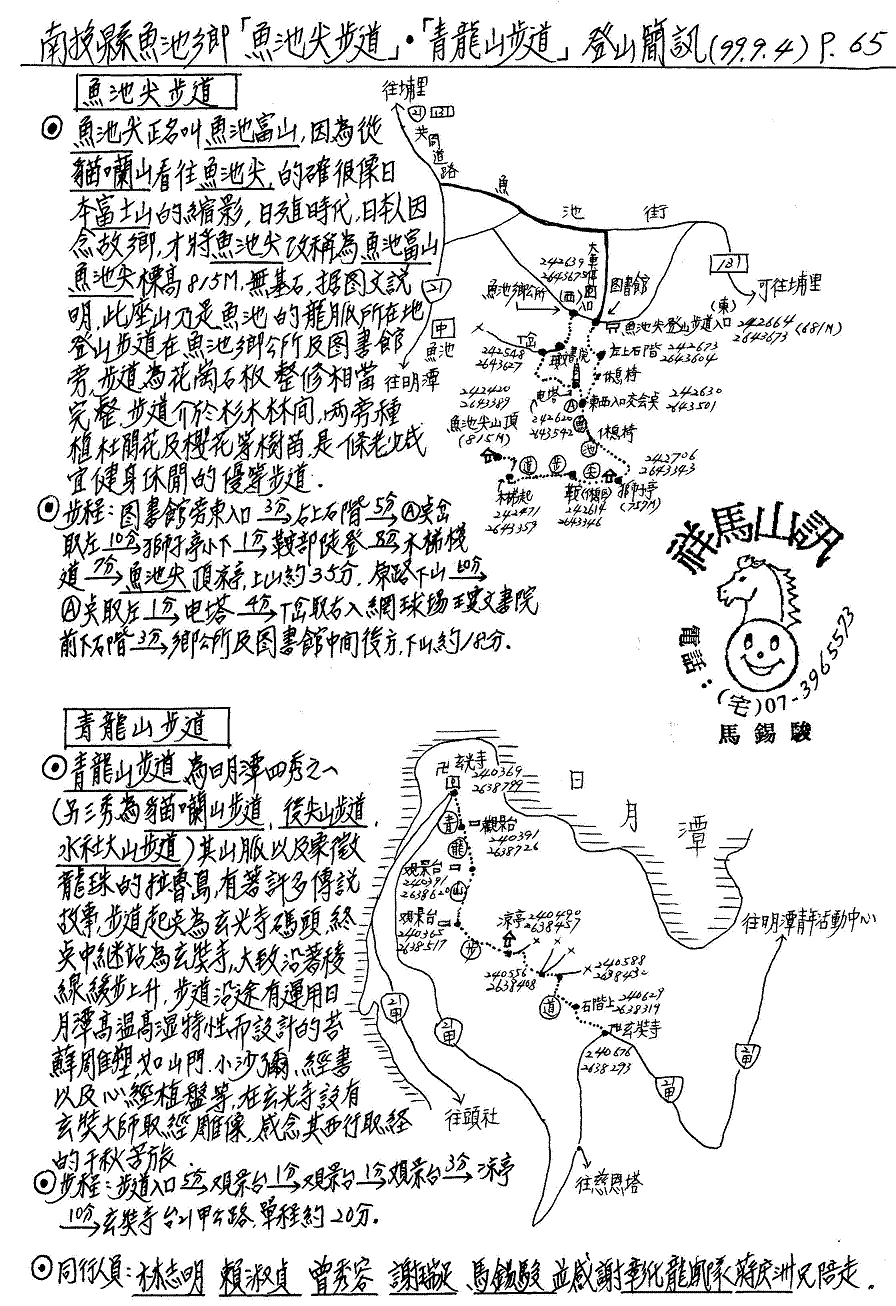 南投縣魚池鄉「魚池尖步道」·「青龍山步道」登山簡訊(99.9.4) P.65
魚池尖步道
魚池尖正名叫魚池富山,因為從
貓囒山看往魚池尖,的確很像日
本富士山的縮影,日殖時代,日本人因
念故鄉,才將魚池尖改稱為魚池富山
魚池尖標高815M,無基石,據图文說
明,此座山乃是魚池的龍脈所在地
登山步道在魚池鄉公所及图書館
旁,步道為花崗石板整修相當
完整,步道介於杉木林間,兩旁種
植杜鵑花及櫻花等樹苗,是一條老少咸
宜健身休閒的優等步道.
步程:图書館旁東入口 3分→右上石階 5分→Ⓐ岔
取左 10分→獅子亭小下 1分→鞍部陡登 木梯棧
道 7分→魚池尖頂涼亭,上山約35分.原路下山 10分→
Ⓐ岔取左 1分→电塔 4分→T岔取右入網球場 文書院
前下石階 3分→鄉公所及图書館中間後方,下山約18分.
往埔里
21 131
共同道路
魚 池 街
131
可往埔里
21
中
魚池
往明潭
大車停
图書館
242639
2643675
魚池鄉公所
(西)
入口
(東)
魚池尖登山步道入口 242664
2643673 (681M)
T岔
242548
2643627
書院
右上石階 242673
2643604
休息椅
电塔
Ⓐ
東西入口交会岔 242630
2643501
242420
2643389
魚池尖山頂
(815M)
242620
2643542
魚
池
尖
步
道
休息椅
242706
2643343
獅子亭
(757M)
木梯起
242471
2643359
鞍(休息)
242614
2643346
祥馬山訊
電話:(宅)07-3965573
馬錫駿
青龍山步道
青龍山步道,為日月潭四秀之一
(另三秀為貓囒山步道,後尖山步道,
水社大山步道)其山脈以及象徵
龍珠的拉魯島,有著許多傳說
故事,步道起点為玄光寺碼頭,終
点中継站為玄奘寺,大致沿著稜
線緩步上升,步道沿途有運用日
月潭高温高湿特性而設計的苔
蘚雕塑,如山門.小沙彌,經書
以及心經植盤等,在玄光寺設有
玄奘大師取經雕像,感念其西行取経
的千秋苦旅.
步程:步道入口 5分→观景台 1分→观景台 1分→观景台 3分→涼亭
10分→玄奘寺台21甲公路,單程約20分.
卍玄光寺
240369
2638799
日 月 潭
青
龍
山
步
道
觀景台
240391
2638726
观景台
240391
2638620
观景台
240365
2638517
涼亭 240490
2638457
240556
2638408
240588
石階上 240629
2638319
玄奘寺
240676
2638293
往明潭青年活動中心
21
21甲
21甲
21甲
往頭社
往慈恩塔
同行人員:林志明 賴淑貞 曾秀容 謝瑞足 馬錫駿 並感謝彰化龍 隊蔣 洲兄陪走.